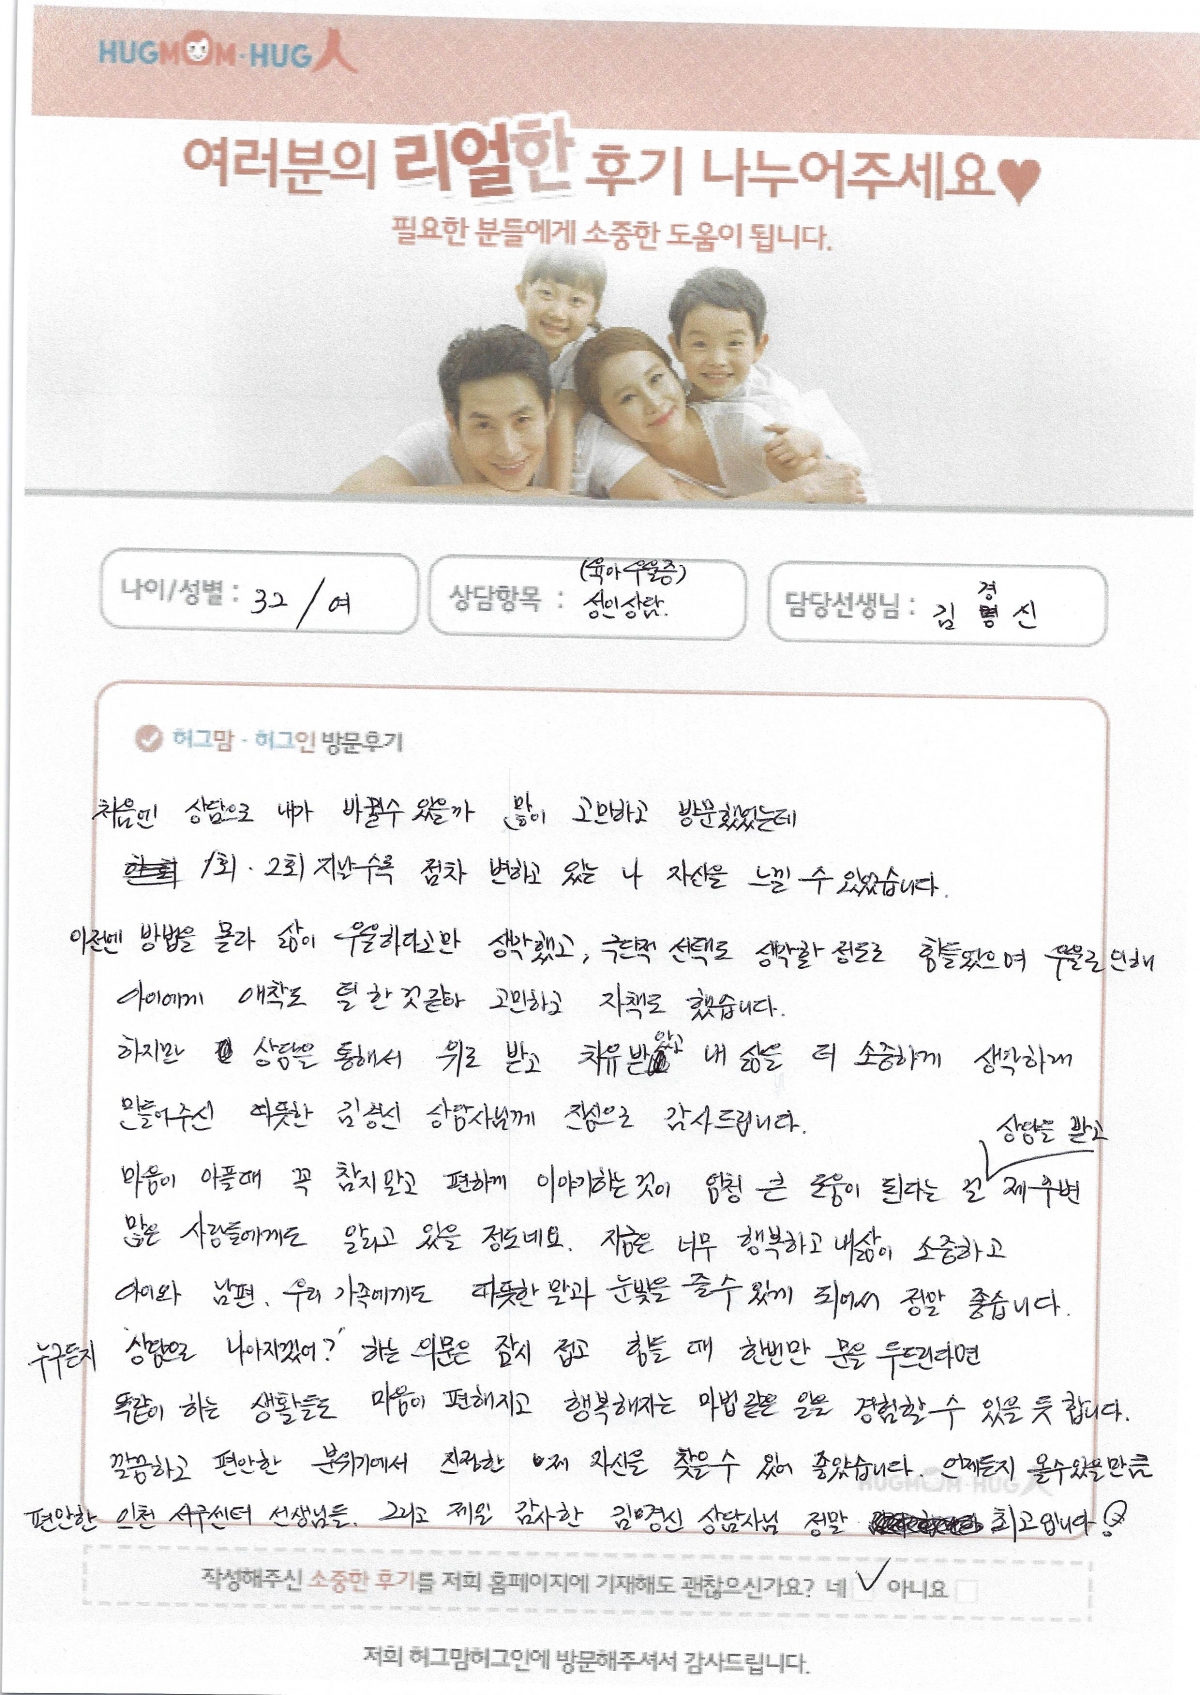 HUGMOM·HUG人
여러분의 리얼한 후기 나누어주세요♥
필요한 분들에게 소중한 도움이 됩니다.
나이/성별 : 32 / 여
상담항목 : (육아우울증) 성인상담.
담당선생님 : 김경신
허그맘 · 허그인 방문후기
처음엔 상담으로 내가 바뀔수 있을까 많이 고민하고 방문했었는데
1회 · 2회 지날수록 점차 변하고 있는 나 자신을 느낄 수 있었습니다.
이전엔 방법을 몰라 삶이 우울하다고만 생각했고, 극단적 선택도 생각할 정도로 힘들었으며 우울로 인해
아이에게 애착도 덜 한 것 같아 고민하고 자책도 했습니다.
하지만 상담을 통해서 위로 받고 치유받았고 내 삶을 더 소중하게 생각하게
만들어주신 따뜻한 김경신 상담사님께 진심으로 감사드립니다.
마음이 아플때 꼭 참지말고 편하게 이야기하는 것이 엄청 큰 도움이 된다는 걸 상담을 받고 제 주변
많은 사람들에게도 알리고 있을 정도네요. 지금은 너무 행복하고 내삶이 소중하고
아이와 남편, 우리 가족에게도 따뜻한 말과 눈빛을 줄수 있게 되어서 정말 좋습니다.
누구든지 "상담으로 나아지겠어?" 하는 의문은 잠시 접고 힘들 때 한번만 문을 두드린다면
똑같이 하는 생활들도 마음이 편해지고 행복해지는 마법같은 일을 경험할 수 있을 듯 합니다.
깔끔하고 편안한 분위기에서 진정한 제 자신을 찾을수 있어 좋았습니다. 언제든지 올수있을만큼
HUGMOM·HUG人
편안한 인천 서구센터 선생님들. 그리고 제일 감사한 김경신 상담사님 정말 최고입니다!
작성해주신 소중한 후기를 저희 홈페이지에 기재해도 괜찮으신가요? 네 ✓ 아니요 □
저희 허그맘허그인에 방문해주셔서 감사드립니다.